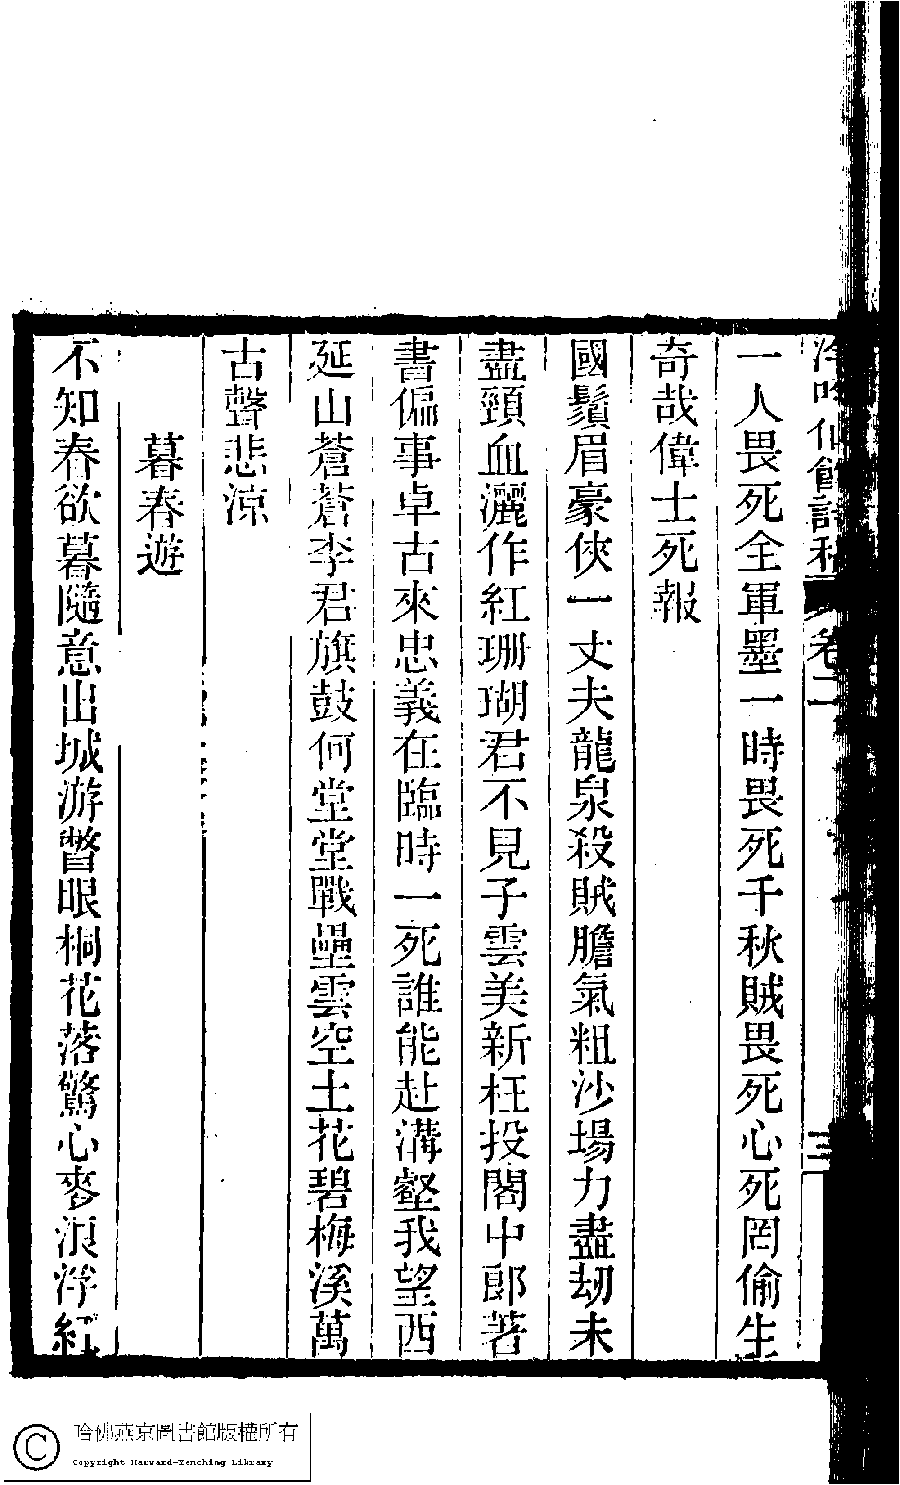 冷吟仙館詩稿 卷二 三
一人畏死全軍墨一時畏死千秋賊畏死心死罔偷生
奇哉偉士死報
國鬚眉豪俠一丈夫龍泉殺賊膽氣粗沙場力盡刼未
盡頸血灑作紅珊瑚君不見子雲美新枉投閣中郎著
書偏事卓古來忠義在臨時一死誰能赴溝壑我望西
延山蒼蒼李君旗鼓何堂堂戰壘雲空土花碧梅溪萬
古聲悲涼
暮春遊
不知春欲暮隨意出城游瞥眼桐花落驚心麥浪浮紅
哈佛燕京圖書館版權所有
Copyright Harvard-Yenching Library